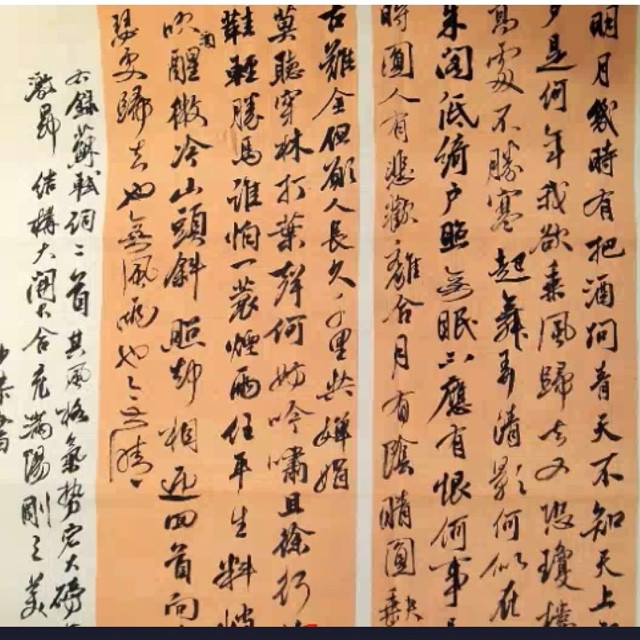 明月幾時有把酒問青天不知天上
夕是何年我欲乘風歸去又恐瓊樓
高處不勝寒起舞弄清影何似在
朱阁低绮户照無眠不應有恨何事
時圓人有悲歡離合月有陰晴圓缺
古難全但願人長久千里共嬋娟
莫聽穿林打葉聲何妨吟嘯且徐行
鞋輕勝馬誰怕一蓑煙雨任平生料峭
吹酒醒微冷山頭斜照却相迎回首向
瑟處歸去也無風雨也無晴
錄蘇軾詞二首其風格氣勢宏大磅
激昂結構大開大合充滿陽剛之美